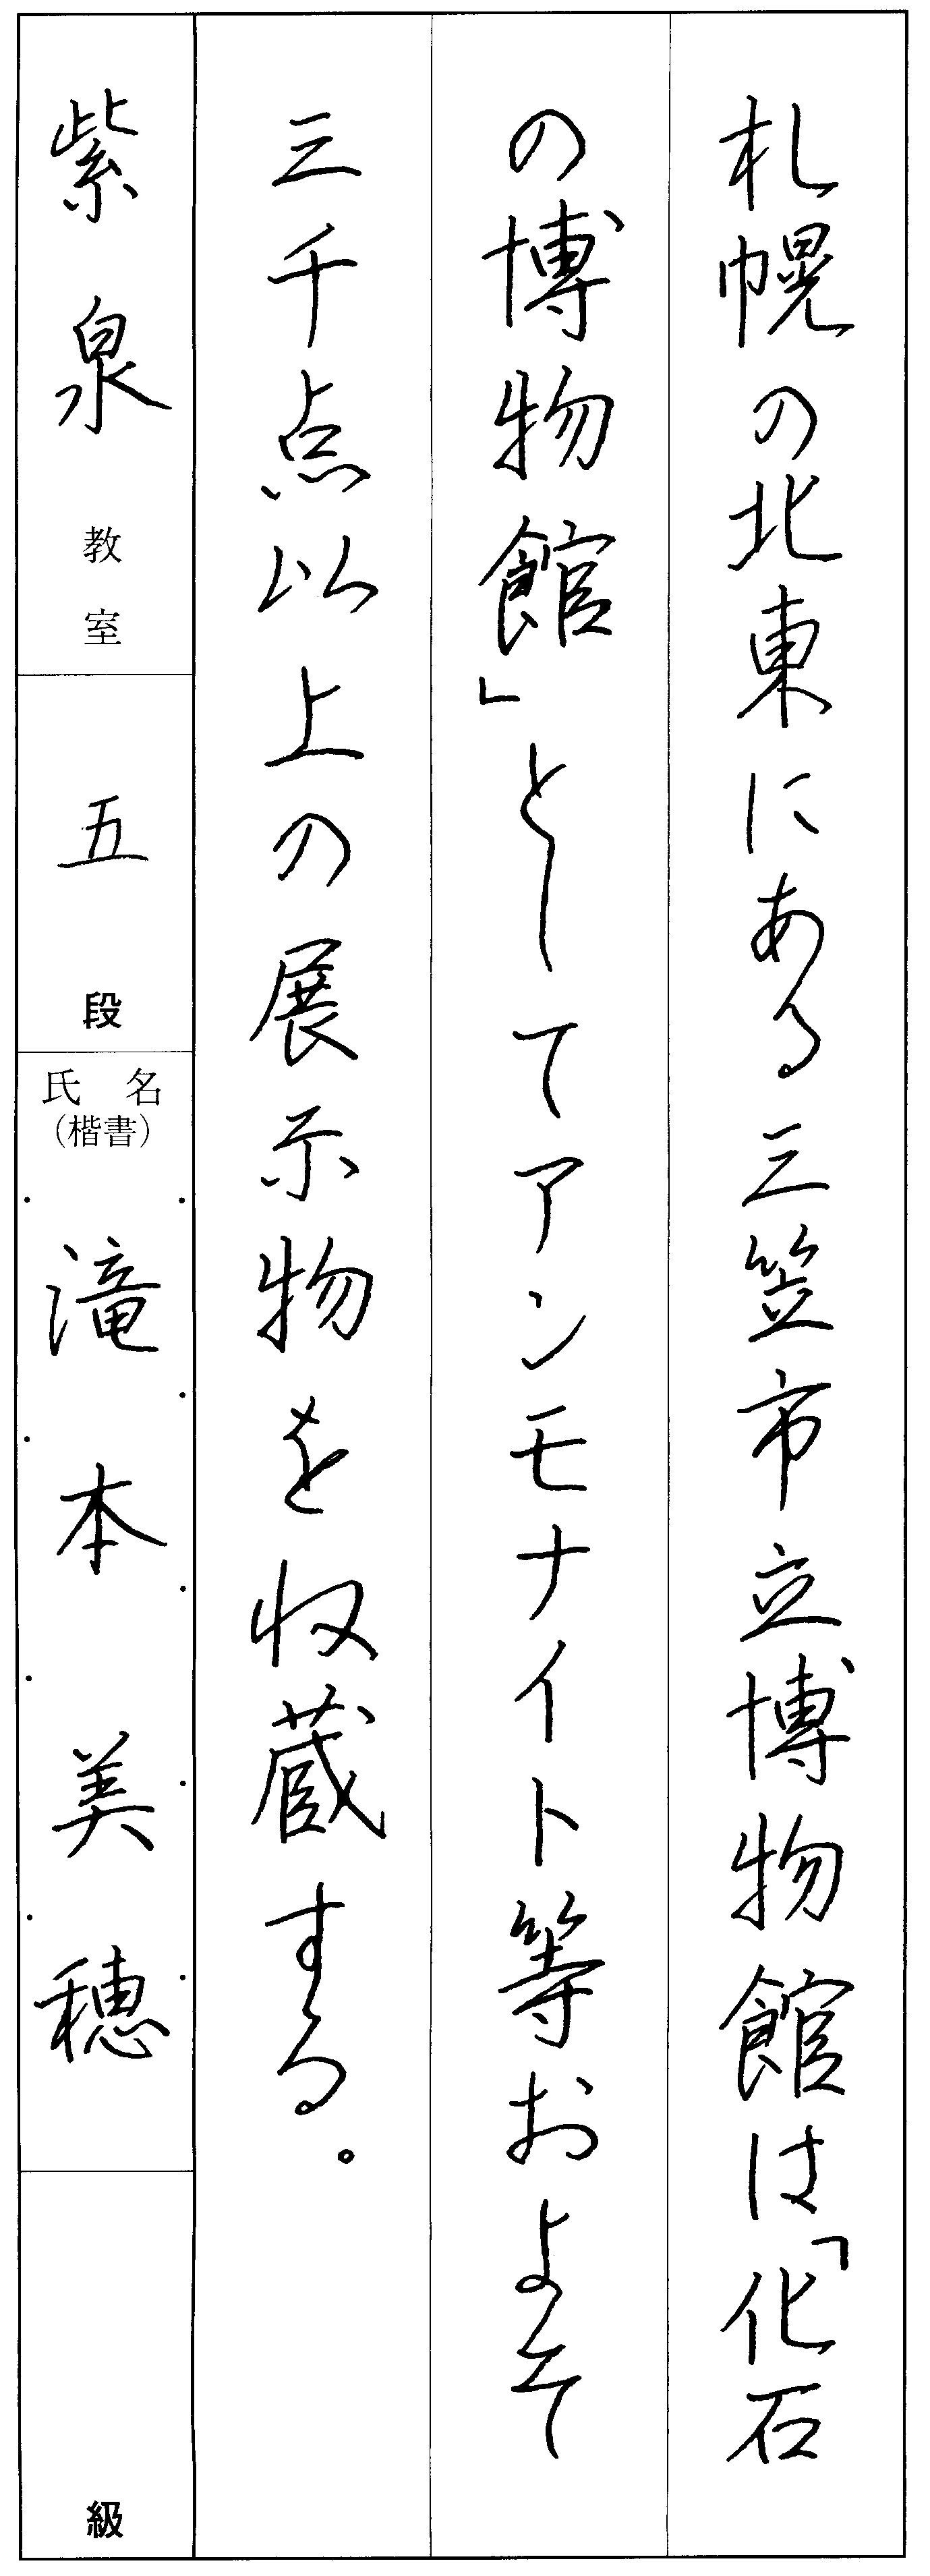 札幌の北東にある三笠市立博物館は「化石
の博物館」としてアンモナイト等およそ
三千点以上の展示物を収蔵する。
紫泉教室
五段
氏名
(楷書)
滝本美穂
級